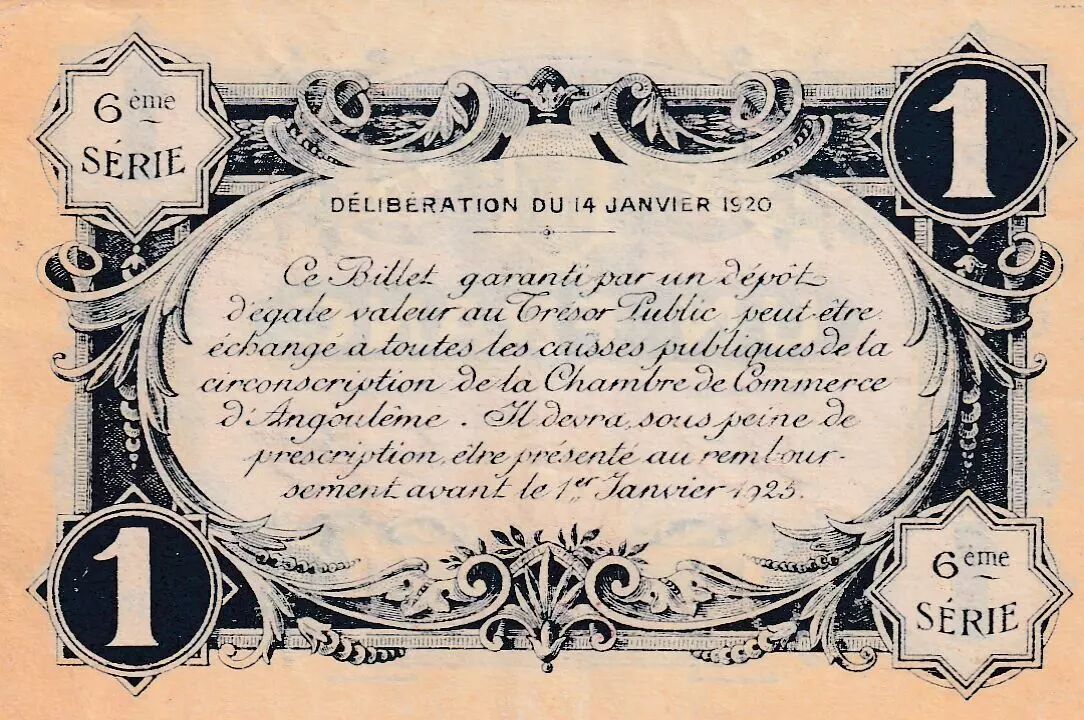 6 ème
SÉRIE
1
DÉLIBÉRATION DU 14 JANVIER 1920
Ce Billet garanti par un dépôt
d'égale valeur au Trésor Public peut être
échangé à toutes les caisses publiques de la
circonscription de la Chambre de Commerce
d'Angoulême. Il devra, sous peine de
prescription, être présenté au rembour-
sement avant le 1er Janvier 1925.
1
6 ème
SÉRIE